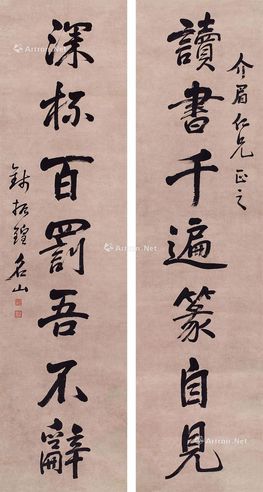 介眉仁兄正之
讀書千遍篆自見
深杯百罰吾不辭
錢振鍠名山
Artron.Net